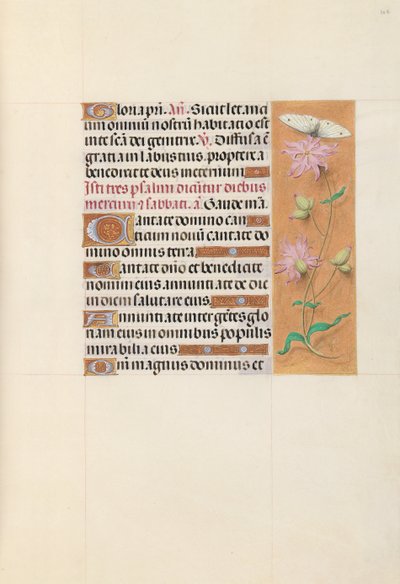 Gloria pri. An. Sicut letanci
um omniū nostrū habitatio est
in te scā dei genitrix. V. Diffusa ē
gratia in labiis tuis. propterea
benedixit te deus in eternum.
Isti tres psalmi dicūtur diebus
mercurii ⁊ sabbati. ā. Gaude m̄a.
Cantate domino can
ticum nouū cantate do
mino omnis terra.
Cantate dn̄o et benedicite
nomini eius annuntiate de die
in diem salutare eius.
Annuntiate inter gētes glo
riam eius in omnibus populis
mirabilia eius.
Qm̄ magnus dominus et